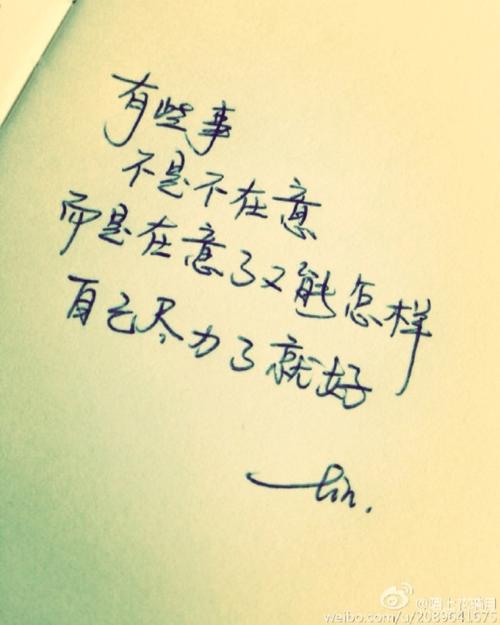 有些事
不是不在意
而是在意了又能怎样
自己尽力了就好
lin.
weibo.com/u/2089641675